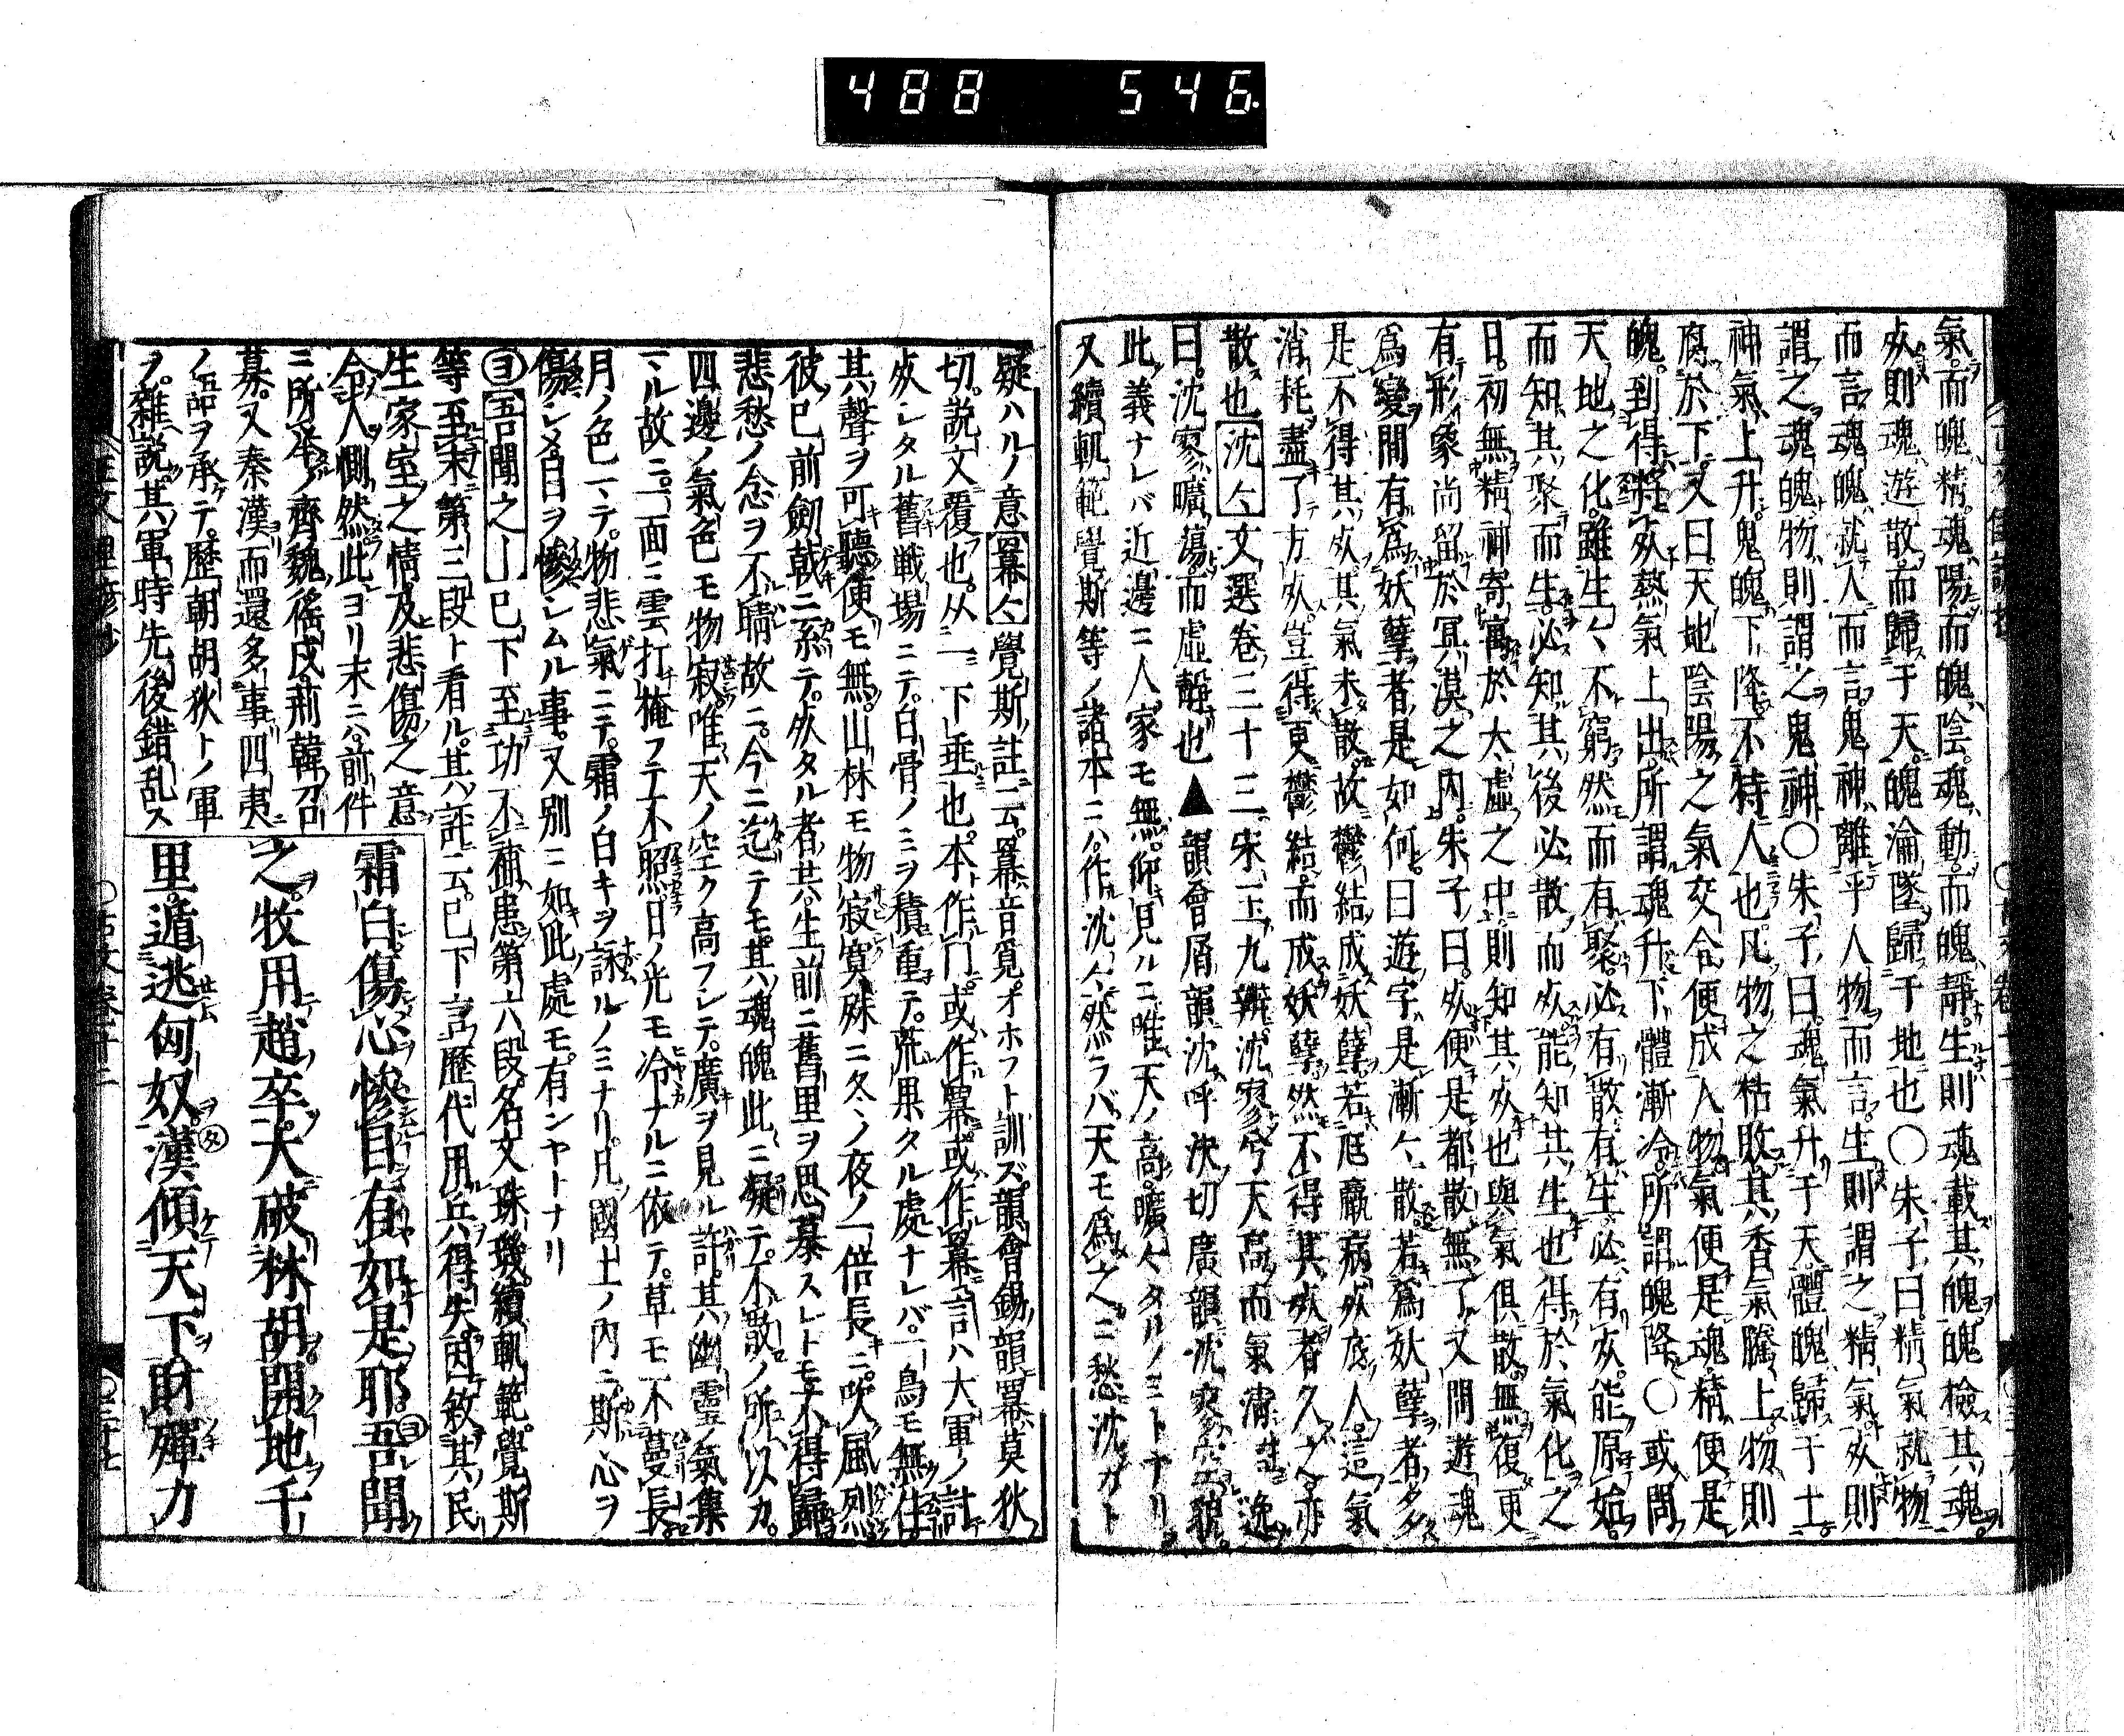 488 546
氣。而魄精。魂陽而魄陰。魂動。而魄靜。生則魂載其魄。魄檢其魂。
死則魂遊散。而歸于天。魄淪墜歸于地也〇朱子曰。精氣就物
而言。魂魄就人而言。鬼神離乎人物而言。生則謂之精氣。死則
謂之魂魄。物則謂之鬼神〇朱子曰。魂氣升于天。體魄歸于土
神氣上升。鬼魄下降。不特人也。凡物之枯敗。其香氣騰上。物則
腐於下。又曰。天地陰陽之氣交合。便成人物。氣便是魂。精便是
魄。到得將死。熱氣上出。所謂魂升。下體漸冷。所謂魄降〇或問
天地之化。雖生々不窮。然而有聚。必有散。有生。必有死。能原始。
而知其聚而生。必知其後必散而死。能知其生也得於氣化之
日。初無精神寄寓於太虛之中。則知其死也與氣俱散。無復更
有形象尚留於冥漠之內。朱子曰。死便是都散無了。又問遊魂
爲變間有爲妖孽者。是如何。曰遊字。是漸々散。若爲妖孽者。多
是不得其死。其氣未散。故鬱結成妖孽。若尫羸病死底人。這氣
消耗盡了方死。豈得更鬱結。而成妖孽。然不得其死者久之。亦
散也 沈々 文選卷三十三宋玉九辨。沈寥兮天高而氣淸。註逸
曰。沈寥曠蕩而虛靜也▲韻會屑韻沈呼決切廣韻沈寥空貌。
此義ナレバ近邊ニ人家モ無。仰見ルニ唯天ノ高。曠々タルノミトナリ
又續軌範覺斯等ノ諸本ニハ。作沈々。然ラバ天モ爲之ニ愁沈カト
疑ハルノ意 冪々 覺斯註云。冪音覓。オホフト訓ズ。韻會錫韻冪莫狄
切。說文覆也。从一下垂也。本作冂。或作冪或作幕。言ハ大軍ノ討
死シタル舊戰場ニテ。白骨ノミヲ積重テ。荒果タル處ナレバ。一鳥モ無住
其聲ヲ可聽便モ無。山林モ物寂寞殊ニ冬ノ夜ノ一倍長ニ。吹風烈
彼已前劒戟ニ テ。死タル者共。生前ニ舊里ヲ思慕スレトモ不得歸
悲愁ノ念ヲ不晴故ニ。今ニ迄テモ。其魂魄此ニ凝テ。不散ノ所以カ。
四邊ノ氣色モ物寂。唯天ノ空ク高フシテ。廣ヲ見ル許。其幽靈ノ氣集
マル故ニ。一面ニ雲打掩フテ不照。日ノ光モ冷ナルニ依テ。草モ不蔓長
月ノ色マテ。物悲氣ニテ。霜ノ白キヲ詠ルノミナリ。凡國土ノ內ニ。斯心ヲ
傷シメ目ヲ慘シムル事。又別ニ如此處モ。有ンヤトナリ
ヨ 吾聞之― 已下至功不補患第六段。名文珠璣。續軌範。覺斯
等至末第三段ト看ル。其註云。已下言歷代用兵得失。因敘其民
生家室之情。及悲傷之意
令人惻然此ヨリ末ニハ。前件
ニ所举ノ齊魏徭戍。荊韓召
募。又秦漢而還多事四夷
ノ語ヲ承テ。歷朝胡狄トノ軍
ヲ。雜說。其軍時先後錯乱ス
霜白。傷心慘目有如是耶。ヨ吾聞
之。牧用趙卒。大破林胡。開地千
里。遁逃匈奴。タ漢傾天下。財殫力